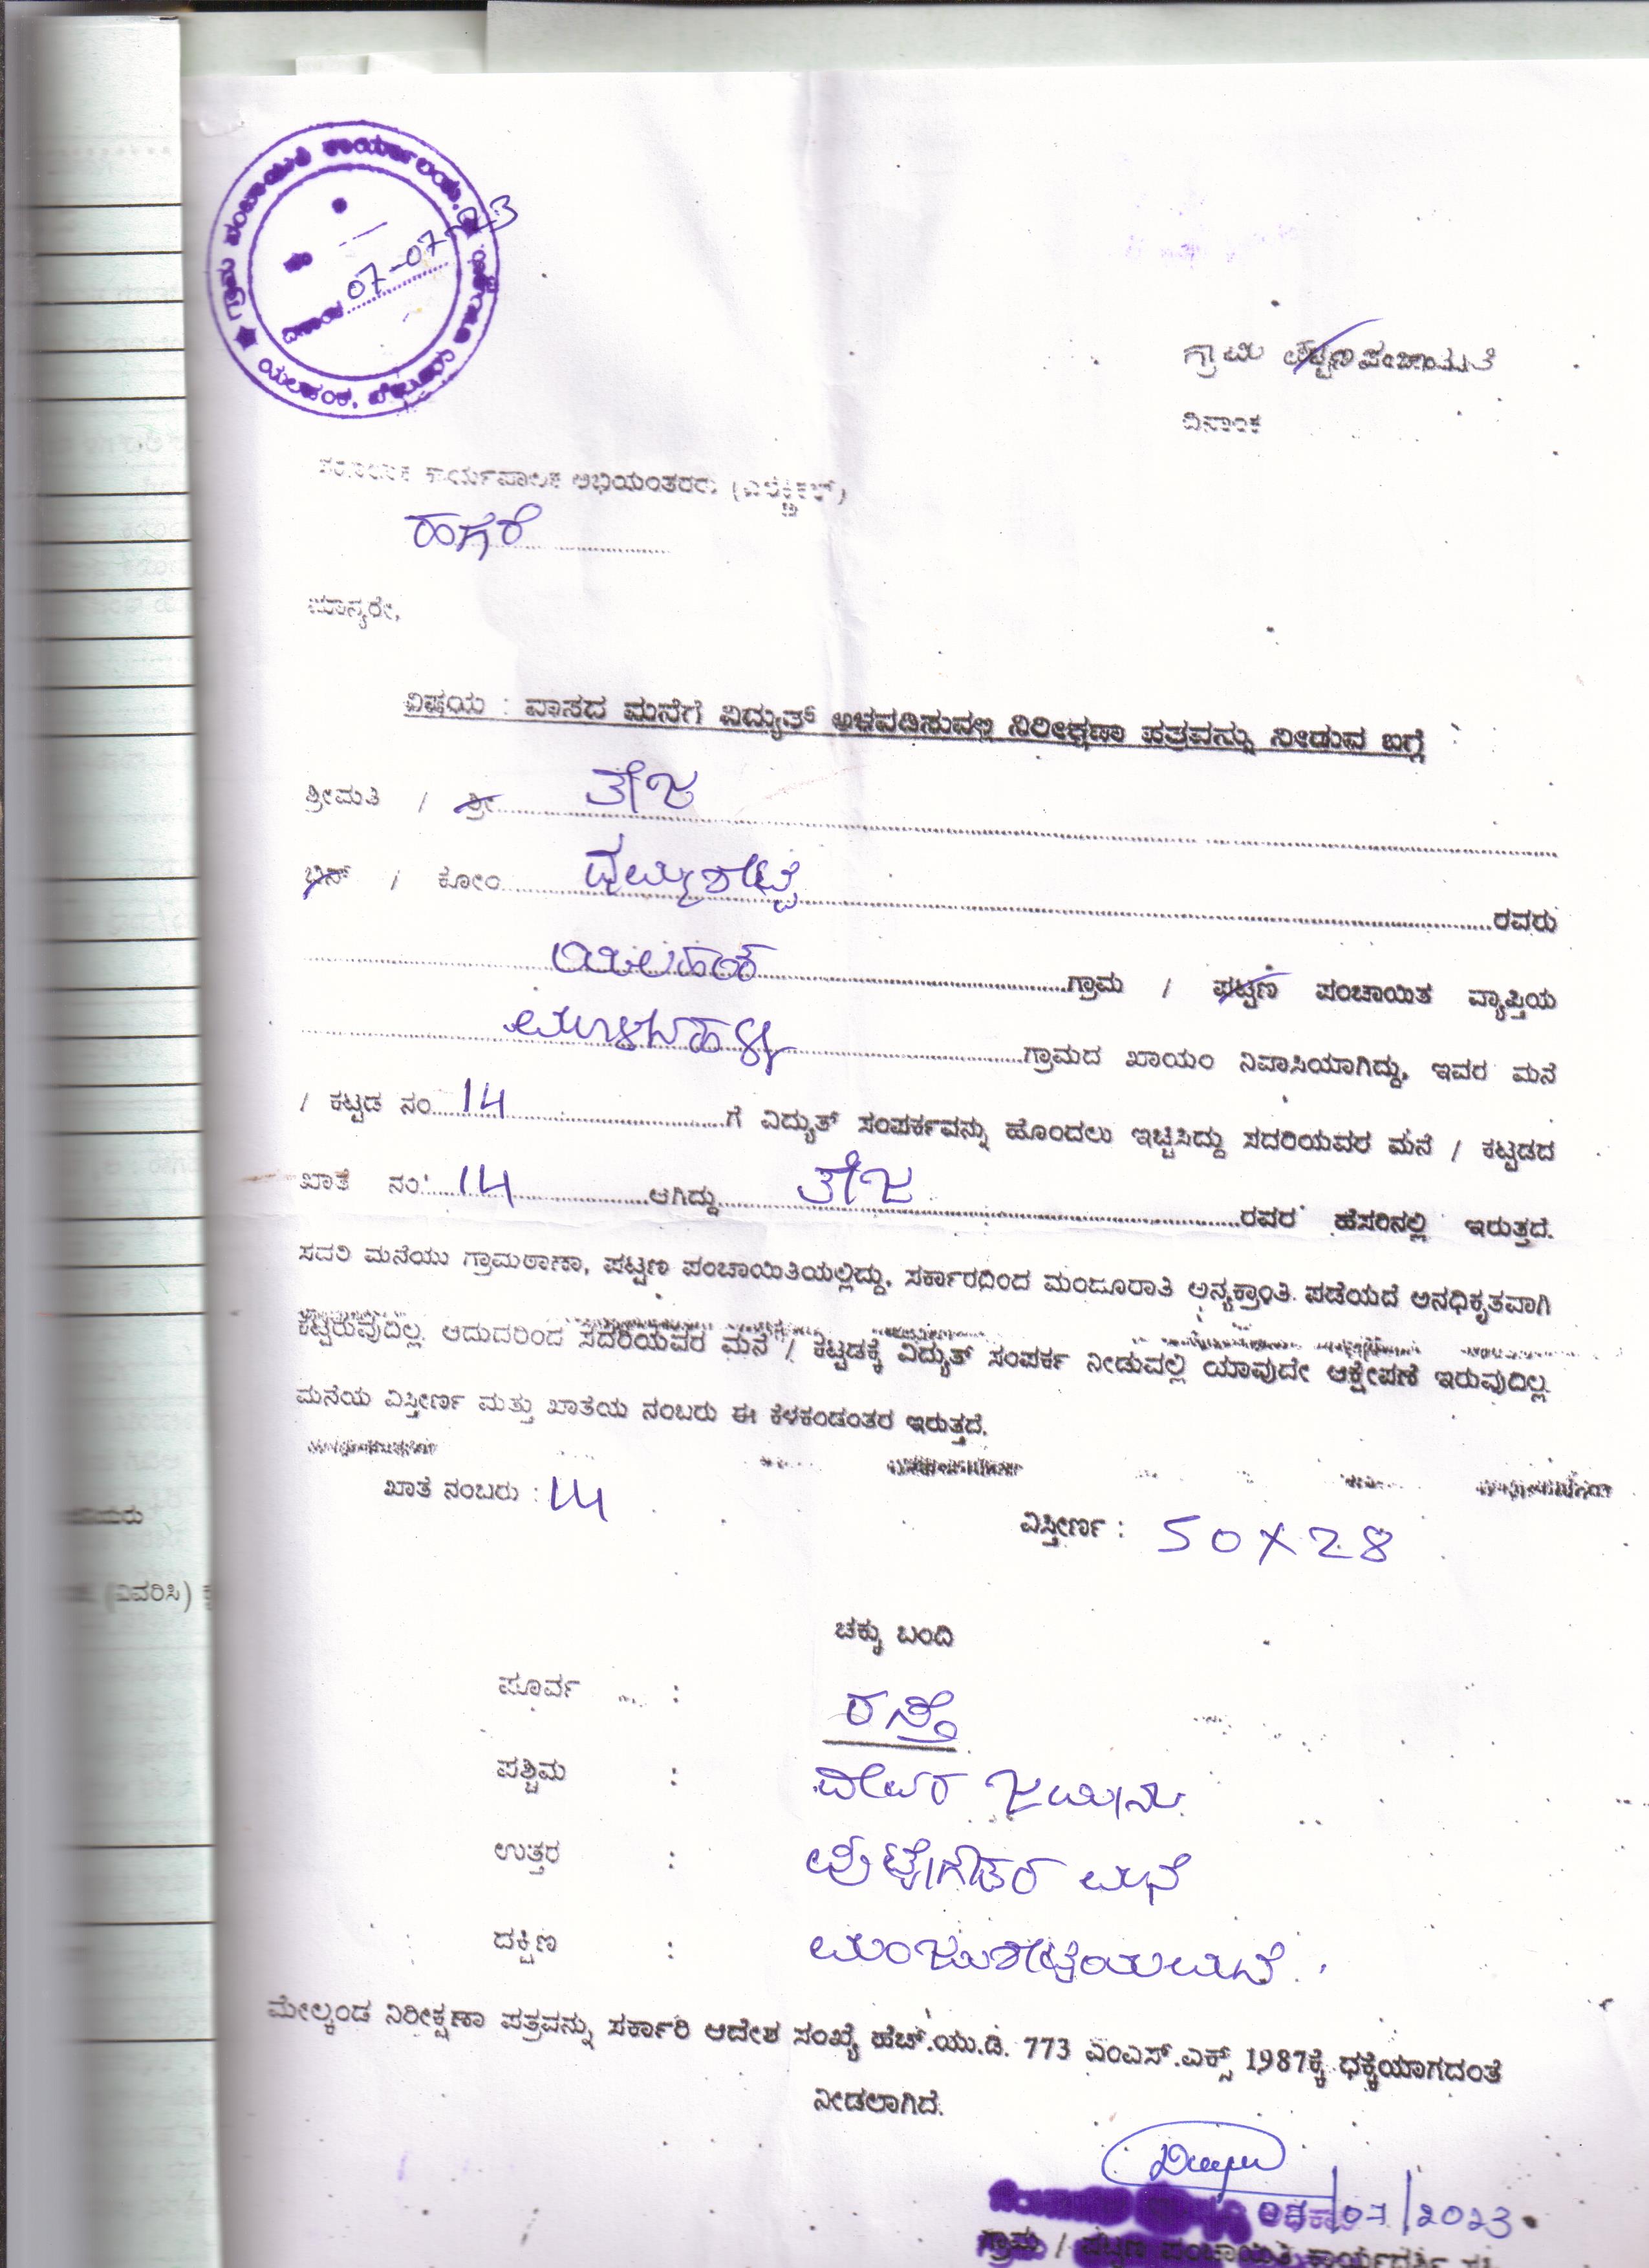 ಗ್ರಾಮ ಪಂಚಾಯಿತಿ ಕಾರ್ಯಾಲಯ
ದಿನಾಂಕ 07-07-23
ಗ್ರಾಮ ಪಟ್ಟಣ ಪಂಚಾಯಿತಿ
ದಿನಾಂಕ
ಕಾರ್ಯಪಾಲಕ ಅಭಿಯಂತರರು (ಎಲೆಕ್ಟ್ರಿಕಲ್)
ಹಗರೆ
ಮಾನ್ಯರೇ,
ವಿಷಯ : ವಾಸದ ಮನೆಗೆ ವಿದ್ಯುತ್ ಅಳವಡಿಸುವಲ್ಲಿ ನಿರೀಕ್ಷಣಾ ಪತ್ರವನ್ನು ನೀಡುವ ಬಗ್ಗೆ
ಶ್ರೀಮತಿ / ಶ್ರೀ ತೇಜ
ಬಿನ್ / ಕೋಂ ರವರು
ಗ್ರಾಮ / ಪಟ್ಟಣ ಪಂಚಾಯಿತ ವ್ಯಾಪ್ತಿಯ
ಗ್ರಾಮದ ಖಾಯಂ ನಿವಾಸಿಯಾಗಿದ್ದು, ಇವರ ಮನೆ
/ ಕಟ್ಟಡ ನಂ 14 ಗೆ ವಿದ್ಯುತ್ ಸಂಪರ್ಕವನ್ನು ಹೊಂದಲು ಇಚ್ಚಿಸಿದ್ದು ಸದರಿಯವರ ಮನೆ / ಕಟ್ಟಡದ
ಖಾತೆ ನಂ 14 ಆಗಿದ್ದು ತೇಜ ರವರ ಹೆಸರಿನಲ್ಲಿ ಇರುತ್ತದೆ.
ಸದರಿ ಮನೆಯು ಗ್ರಾಮಠಾಣಾ, ಪಟ್ಟಣ ಪಂಚಾಯಿತಿಯಲ್ಲಿದ್ದು, ಸರ್ಕಾರದಿಂದ ಮಂಜೂರಾತಿ ಅನ್ಯಕ್ರಾಂತಿ ಪಡೆಯದೆ ಅನಧಿಕೃತವಾಗಿ
ಕಟ್ಟಿರುವುದಿಲ್ಲ. ಆದುದರಿಂದ ಸದರಿಯವರ ಮನೆ / ಕಟ್ಟಡಕ್ಕೆ ವಿದ್ಯುತ್ ಸಂಪರ್ಕ ನೀಡುವಲ್ಲಿ ಯಾವುದೇ ಆಕ್ಷೇಪಣೆ ಇರುವುದಿಲ್ಲ.
ಮನೆಯ ವಿಸ್ತೀರ್ಣ ಮತ್ತು ಖಾತೆಯ ನಂಬರು ಈ ಕೆಳಕಂಡಂತರ ಇರುತ್ತದೆ.
ಖಾತೆ ನಂಬರು : 14
ವಿಸ್ತೀರ್ಣ : 50X28
ಚಕ್ಕು ಬಂದಿ
ಪೂರ್ವ : ರಸ್ತೆ
ಪಶ್ಚಿಮ : ಜಮೀನು
ಉತ್ತರ : ಪುಟ್ಟೇಗೌಡರ ಮನೆ
ದಕ್ಷಿಣ : ಮಂಜುಶೆಟ್ಟಿಯ ಮನೆ
ಮೇಲ್ಕಂಡ ನಿರೀಕ್ಷಣಾ ಪತ್ರವನ್ನು ಸರ್ಕಾರಿ ಆದೇಶ ಸಂಖ್ಯೆ ಹೆಚ್.ಯು.ಡಿ. 773 ಎಂಎಸ್.ಎಕ್ಸ್ 1987ಕ್ಕೆ ಧಕ್ಕೆಯಾಗದಂತೆ
ನೀಡಲಾಗಿದೆ.
07/07/2023
ಗ್ರಾಮ / ಪಟ್ಟಣ ಪಂಚಾಯಿತಿ ಕಾರ್ಯದರ್ಶಿ
(ವಿವರಿಸಿ)